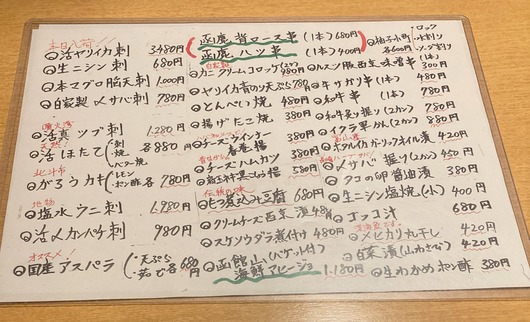 本日入荷
活ヤリイカ刺 3,480円
生ニシン刺 680円
本マグロ脳天刺 1,000円
自家製〆サバ刺 780円
活真ツブ刺 1,280円
活ほたて ・刺 ・焼 ・バター焼 各880円
北斗市
がろうカキ ・レモン ・ポン酢 各780円
地物
塩水ウニ刺 1,980円
活〆カンパチ刺 980円
オススメ
国産アスパラ ・天ぷら ・茹で 各680円
函館 背ロース串 (1本) 680円
函館 ハツ串 (1本) 400円
自家製
カニクリームコロッケ(2ケ) 980円
ヤリイカ香り天ぷら 780円
とんぺい焼 480円
揚げたこ焼 380円
チーズウインナー春巻揚 380円
チーズハムカツ 380円
紅生姜天ぷら揚 580円
伝統の味
もつ煮込み豆腐 680円
クリームチーズ西京漬 480円
スケソウダラ煮付け 480円
函館山(バケット付)
海鮮アヒージョ 1,180円
柚子小町 各600円
・ロック
・水割り
・ソーダ割り
ハルツ豚西京味噌串 380円
牛サガリ串 (1本) 480円
和牛串 (1本) 780円
和牛炙り握り (2カン) 780円
イクラ軍かん (2カン) 880円
ホタルイカガーリックオイル漬 420円
〆サバ握り (2カン) 420円
タコの卵醤油漬 380円
生ニシン塩焼(小) 400円
ゴッコ汁 680円
メヒカリ丸干し 420円
白菜漬(山わさび) 420円
生わかめポン酢 380円